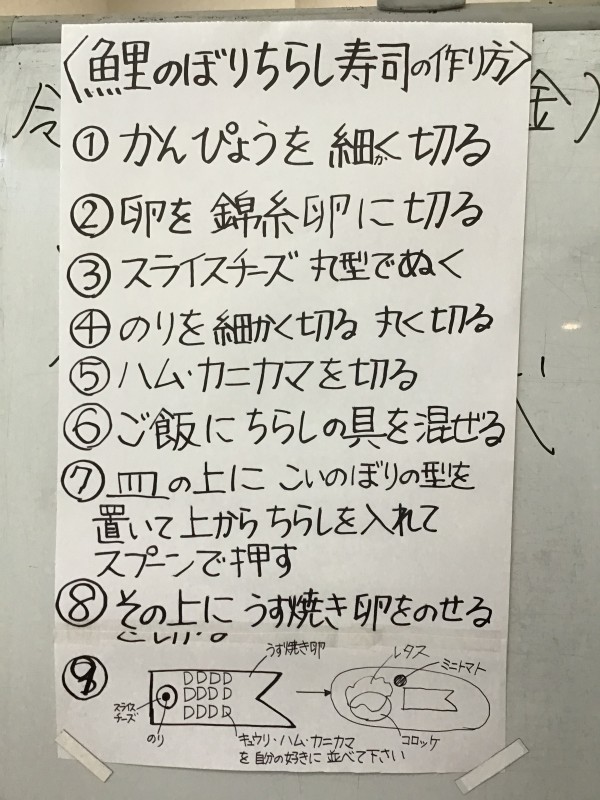 〈鯉のぼりちらし寿司の作り方〉
令 金)
① かんぴょうを 細かく 切る
② 卵を 錦糸卵に 切る
③ スライスチーズ 丸型でぬく
④ のりを 細かく切る 丸く切る
⑤ ハム・カニカマを切る
⑥ ご飯に ちらしの具を混ぜる
⑦ 皿の上に こいのぼりの型を
置いて上から ちらしを入れて
スプーンで押す
⑧ その上に うす焼き卵をのせる
⑨
うす焼き卵
スライス
チーズ
のり
キュウリ・ハム・カニカマ
を 自分の好きに 並べて下さい
レタス
ミニトマト
コロッケ